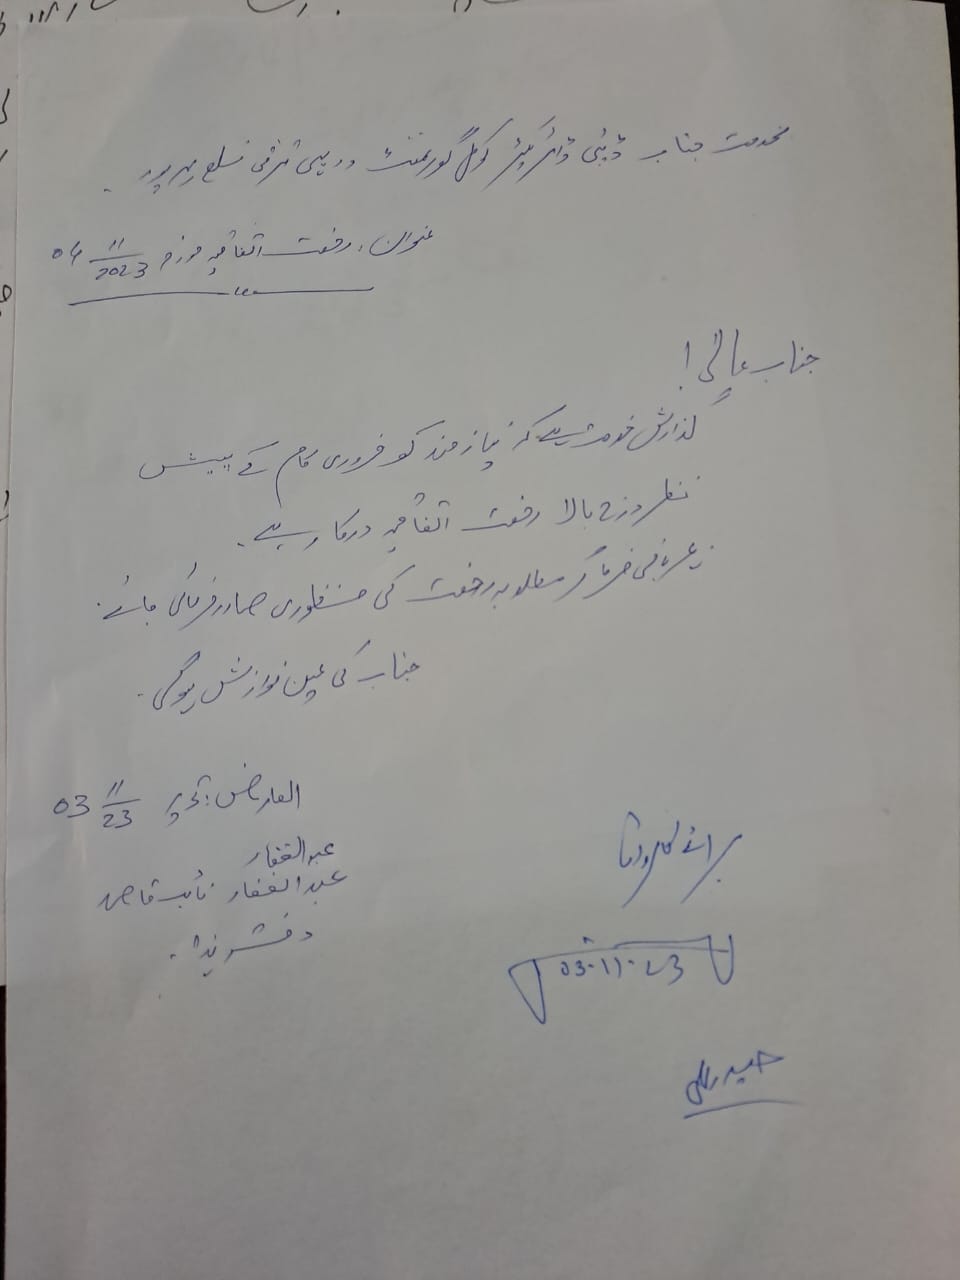 بخدمت جناب ڈپٹی ڈائریکٹر لوکل گورنمنٹ و دیہی ترقی ضلع میرپور۔
عنوان: رخصت اتفاقیہ مورخہ 04 11/2023
جناب عالی!
گذارش خدمت ہے کہ نیازمند کو ضروری کام کے پیش
نظر روز بالا رخصت اتفاقیہ درکار ہے۔
مہربانی فرما کر مطلوبہ رخصت کی منظوری صادر فرمائی جائے۔
جناب کی عین نوازش ہوگی۔
العارض: تحریر 03 11/23
عبدالغفار
عبدالغفار نائب قاصد
دفتر ہذا۔
برائے
03-11-23